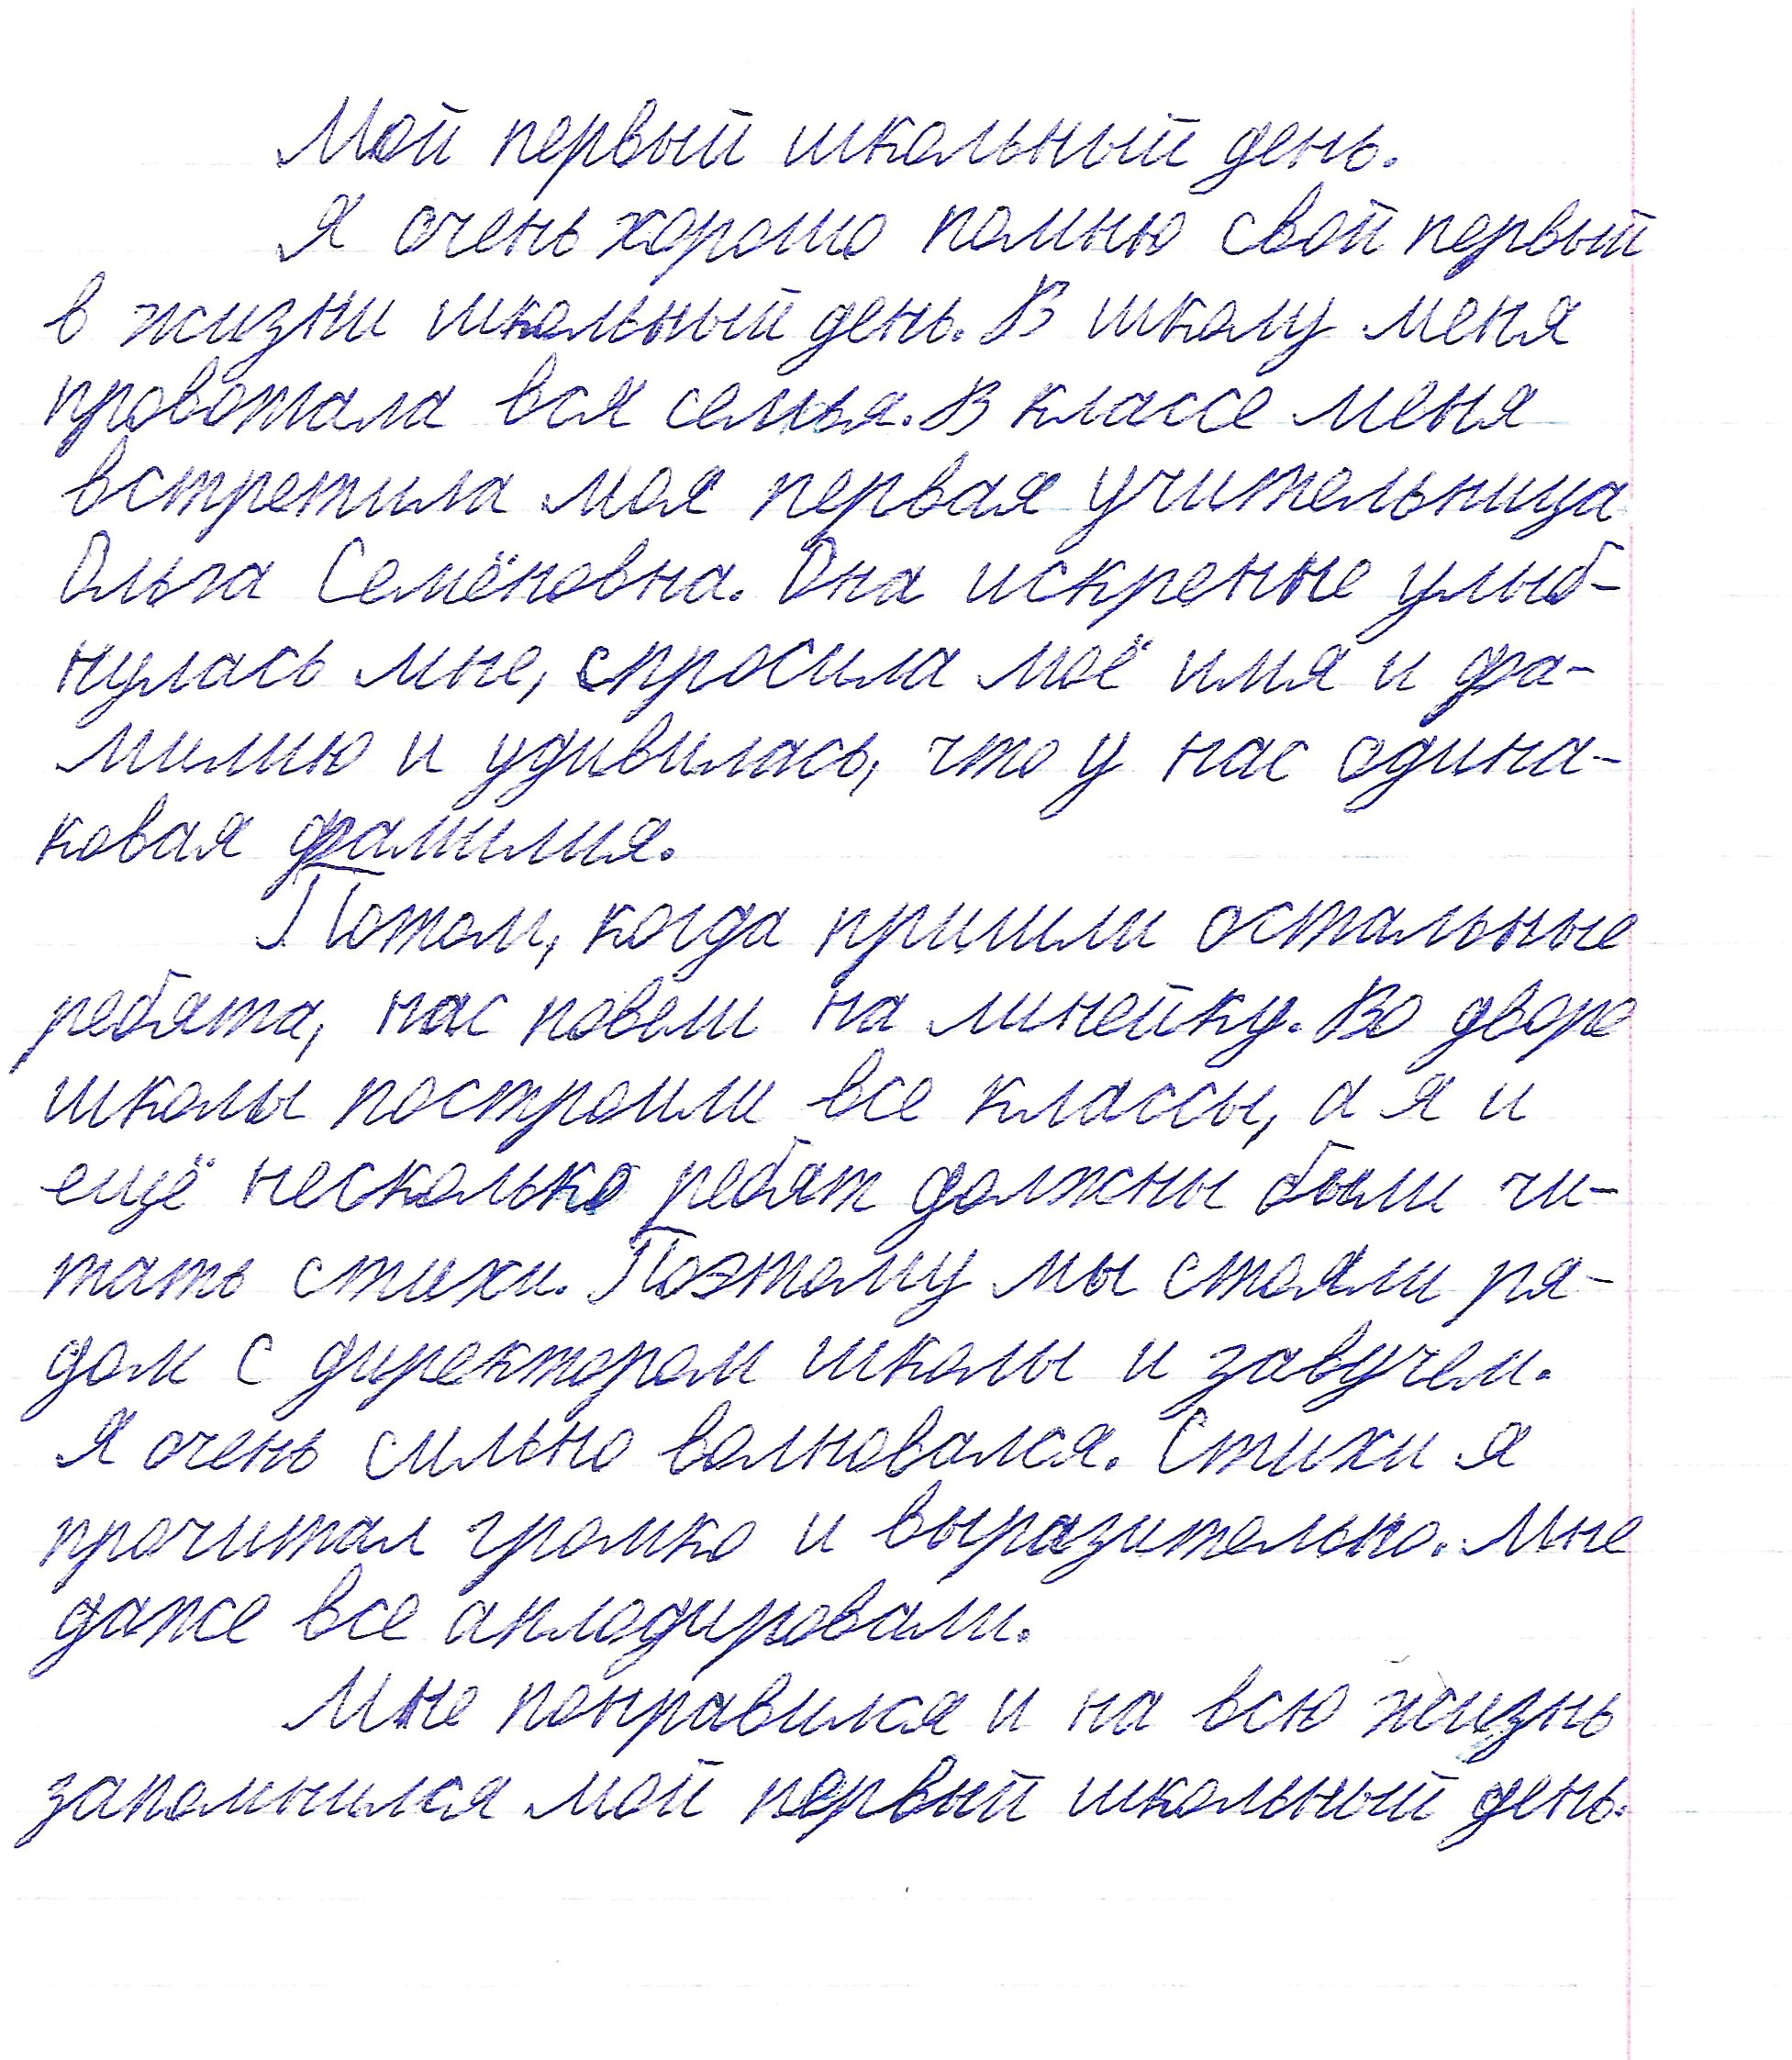 Мой первый школьный день.
Я очень хорошо помню свой первый
в жизни школьный день. В школу меня
провотала вся семья. В классе меня
встретила моя первая учительница
Ольга Семёновна. Она искренне улыб-
нулась мне, спросила моё имя и фа-
милию и удивилась, что у нас одина-
ковая фамилия.
Потом, когда пришли остальные
ребята, нас повели на линейку. Во дворе
школы построили все классы, а я и
ещё несколько ребят должны были чи-
тать стихи. Поэтому мы стояли ря-
дом с директором школы и завучем.
Я очень сильно волновался. Стихи я
прочитал громко и выразительно. Мне
даже все аплодировали.
Мне понравился и на всю жизнь
запомнился мой первый школьный день.